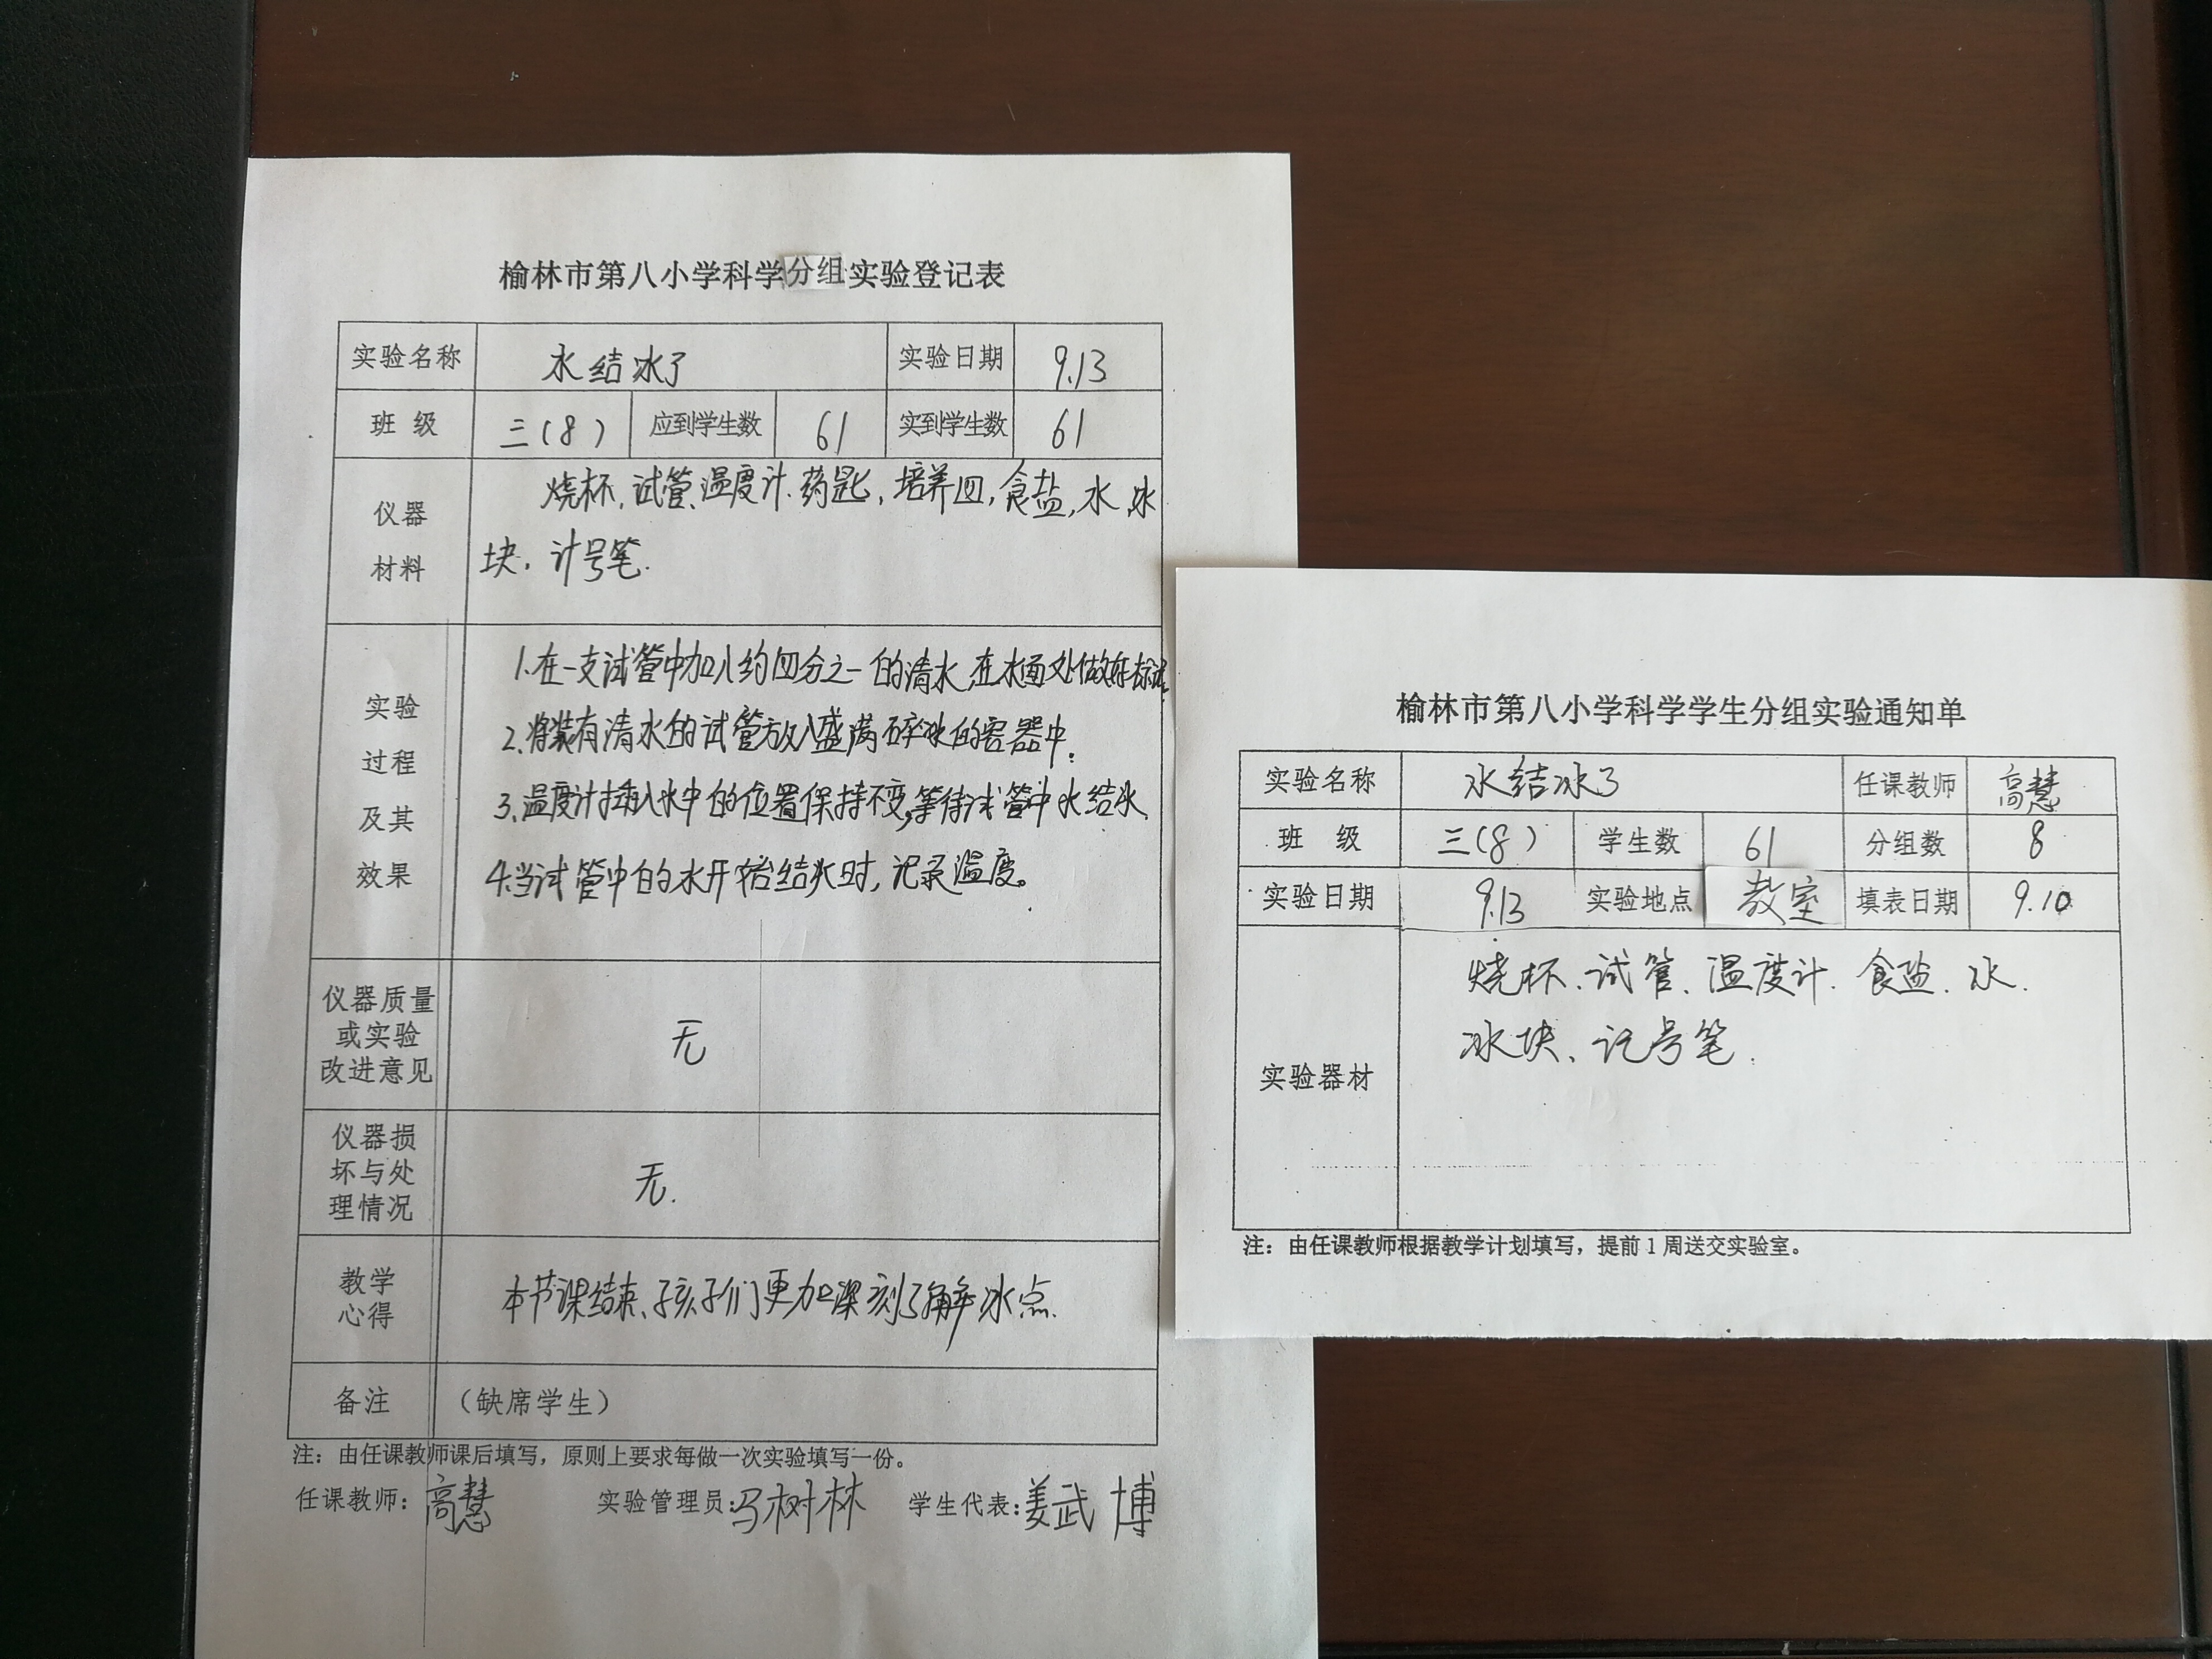 榆林市第八小学科学分组实验登记表
实验名称 水结冰了 实验日期 9.13
班 级 三(8) 应到学生数 61 实到学生数 61
仪器
材料
烧杯、试管、温度计、药匙、培养皿、食盐、水、冰
块、计号笔.
实验
过程
及其
效果
1.在一支试管中加入约四分之一的清水,在水面处做好标记。
2.将装有清水的试管放入盛满碎冰的容器中。
3.温度计插入水中的位置保持不变,等待试管中水结冰.
4.当试管中的水开始结冰时,记录温度。
仪器质量
或实验
改进意见
无
仪器损
坏与处
理情况
无.
教学
心得
本节课结束、孩子们更加深刻了解冰点.
备注 (缺席学生)
注:由任课教师课后填写,原则上要求每做一次实验填写一份。
任课教师:高慧 实验管理员:马树林 学生代表:姜武博
榆林市第八小学科学学生分组实验通知单
实验名称 水结冰了 任课教师 高慧
班 级 三(8) 学生数 61 分组数 8
实验日期 9.13 实验地点 教室 填表日期 9.10
实验器材
烧杯、试管、温度计.食盐.水.
冰块、记号笔.
注:由任课教师根据教学计划填写,提前1周送交实验室。